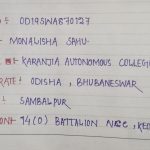 OD19SWA870127
MONALISHA SAHU
KARANJIA AUTONOMOUS COLLEGE
RATE : ODISHA, BHUBANESWAR
: SAMBALPUR
ON : 14(O) BATTALION NCC,